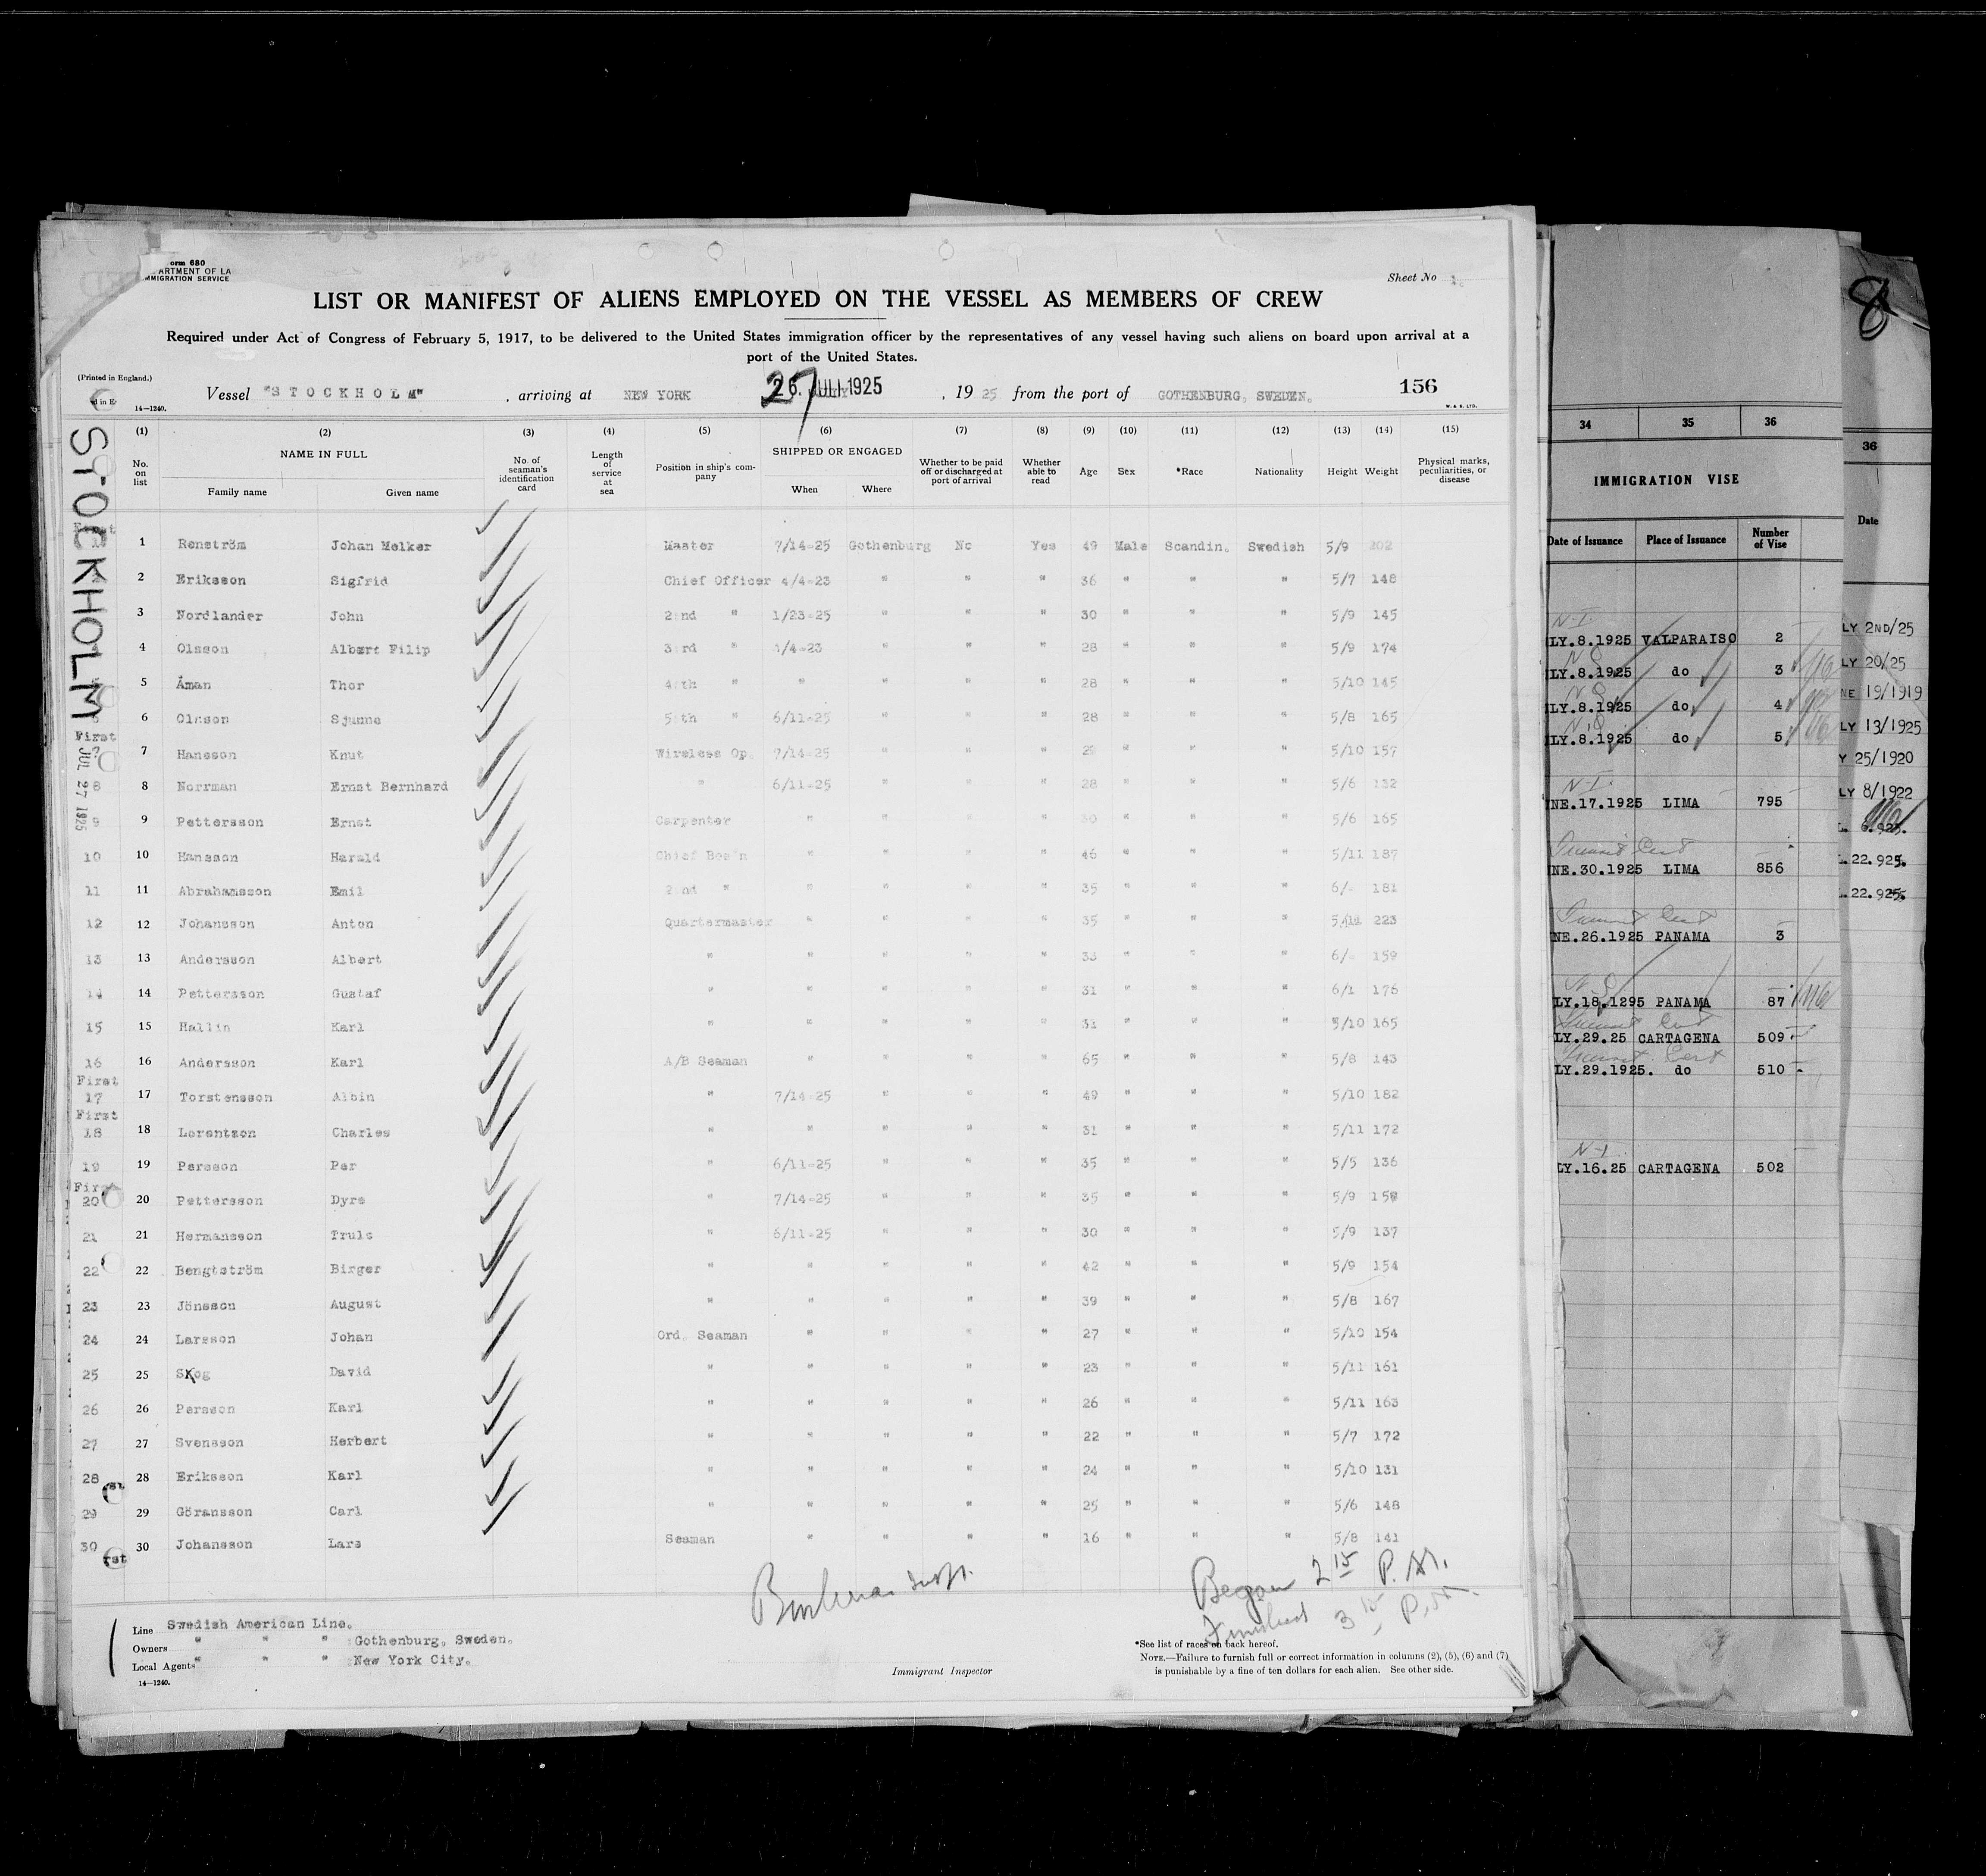 Form 680
DEPARTMENT OF LA
IMMIGRATION SERVICE
Sheet No 1.
LIST OR MANIFEST OF ALIENS EMPLOYED ON THE VESSEL AS MEMBERS OF CREW
Required under Act of Congress of February 5, 1917, to be delivered to the United States immigration officer by the representatives of any vessel having such aliens on board upon arrival at a
port of the United States.
(Printed in England.)
Vessel "STOCKHOLM" , arriving at NEW YORK 26. JULI 1925 27 , 19 25 from the port of GOTHENBURG, SWEDEN. 156
14—1240. W. & S. LTD.
STOCKHOLM
JUL 27 1925
(1) (2) (3) (4) (5) (6) (7) (8) (9) (10) (11) (12) (13) (14) (15)
No. on list NAME IN FULL Family name Given name No. of seaman's identification card Length of service at sea Position in ship's company SHIPPED OR ENGAGED When Where Whether to be paid off or discharged at port of arrival Whether able to read Age Sex *Race Nationality Height Weight Physical marks, peculiarities, or disease
1 Renström Johan Melker Master 7/14-25 Gothenburg No Yes 49 Male Scandin. Swedish 5/9 202
2 Eriksson Sigfrid Chief Officer 4/4-23 " " " 36 " " " 5/7 148
3 Nordlander John 2nd " 1/23-25 " " " 30 " " " 5/9 145
4 Olsson Albert Filip 3rd " 1/4-23 " " " 28 " " " 5/9 174
5 Åman Thor 4th " " " " " 28 " " " 5/10 145
6 Olsson Sjunne 5th " 6/11-25 " " " 28 " " " 5/8 165
First
7 Hansson Knut Wireless Op. 7/14-25 " " " 29 " " " 5/10 157
8 8 Norrman Ernst Bernhard " 6/11-25 " " " 28 " " " 5/6 132
9 9 Pettersson Ernst Carpenter " " " " 30 " " " 5/6 165
10 10 Hansson Harald Chief Bos'n " " " " 46 " " " 5/11 187
11 11 Abrahamsson Emil 2nd " " " " " 35 " " " 6/- 181
12 12 Johansson Anton Quartermaster " " " " 35 " " " 5/11 223
13 13 Andersson Albert " " " " " 33 " " " 6/- 159
14 14 Pettersson Gustaf " " " " " 31 " " " 6/1 176
15 15 Hallin Karl " " " " " 31 " " " 5/10 165
16 16 Andersson Karl A/B Seaman " " " " 65 " " " 5/8 143
First
17 17 Torstensson Albin " 7/14-25 " " " 49 " " " 5/10 182
First
18 18 Lorentzon Charles " " " " " 31 " " " 5/11 172
19 19 Persson Per " 6/11-25 " " " 35 " " " 5/5 136
First
20 20 Pettersson Dyre " 7/14-25 " " " 35 " " " 5/9 158
21 21 Hermansson Truls " 6/11-25 " " " 30 " " " 5/9 137
22 22 Bengtström Birger " " " " " 42 " " " 5/9 154
23 23 Jönsson August " " " " " 39 " " " 5/8 167
24 24 Larsson Johan Ord. Seaman " " " " 27 " " " 5/10 154
25 25 Skog David " " " " " 23 " " " 5/11 161
26 26 Persson Karl " " " " " 26 " " " 5/11 163
27 27 Svensson Herbert " " " " " 22 " " " 5/7 172
28 28 Eriksson Karl " " " " " 24 " " " 5/10 131
29 29 Göransson Carl " " " " " 25 " " " 5/6 148
30 30 Johansson Lars Seaman " " " " 16 " " " 5/8 141
Began 2 15 P. M.
Finished 3 15 P.M.
Line Swedish American Line.
Owners " " " Gothenburg, Sweden.
Local Agents " " " New York City.
14—1240.
Immigrant Inspector
*See list of races on back hereof.
NOTE.—Failure to furnish full or correct information in columns (2), (5), (6) and (7)
is punishable by a fine of ten dollars for each alien. See other side.
34 35 36
IMMIGRATION VISE
Date of Issuance Place of Issuance Number of Vise
N-I
LY.8.1925 VALPARAISO 2
LY.8.1925 do 3
LY.8.1925 do 4
LY.8.1925 do 5
N-I
NE.17.1925 LIMA 795
Transit Cert
NE.30.1925 LIMA 856
Transit Cert
NE.26.1925 PANAMA 3
LY.18.1295 PANAMA 87
Transit Cert
LY.29.25 CARTAGENA 509
Transit Cert
LY.29.1925. do 510
N-I
LY.16.25 CARTAGENA 502
8
36
Date
LY 2ND/25
LY 20/25
NE 19/1919
LY 13/1925
Y 25/1920
LY 8/1922
L. 6.925.
L.22.925.
L.22.925.